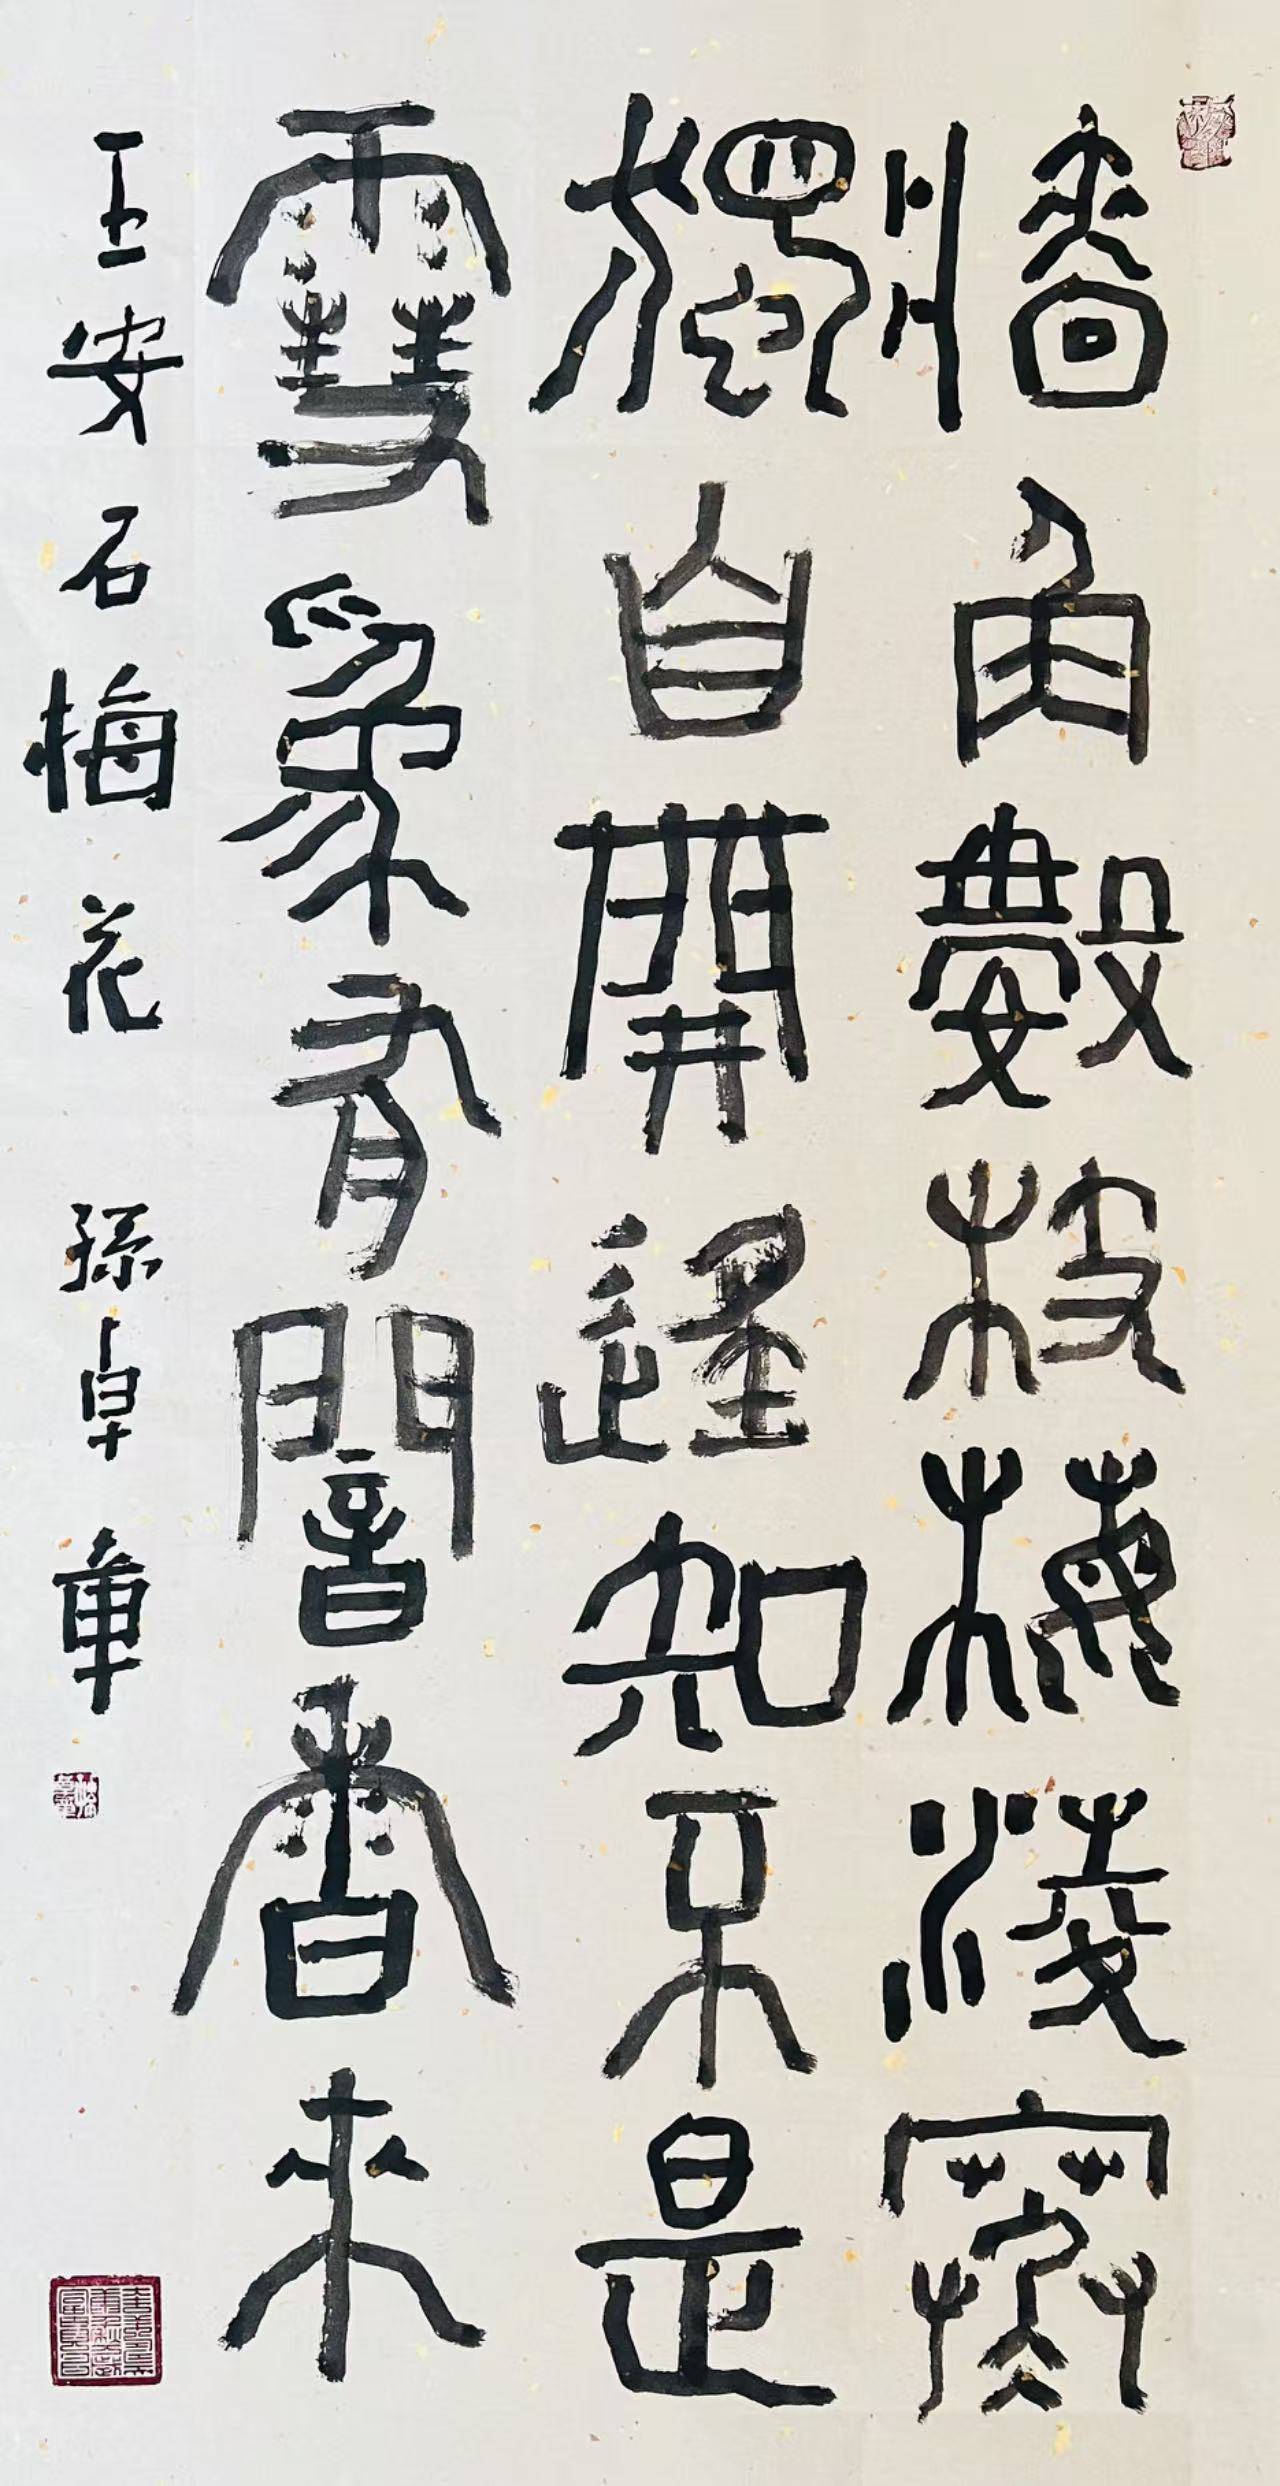 牆角數枝梅淩寒
獨自開遙知不是
雪爲有闇香來
王安石梅花 孫卓章